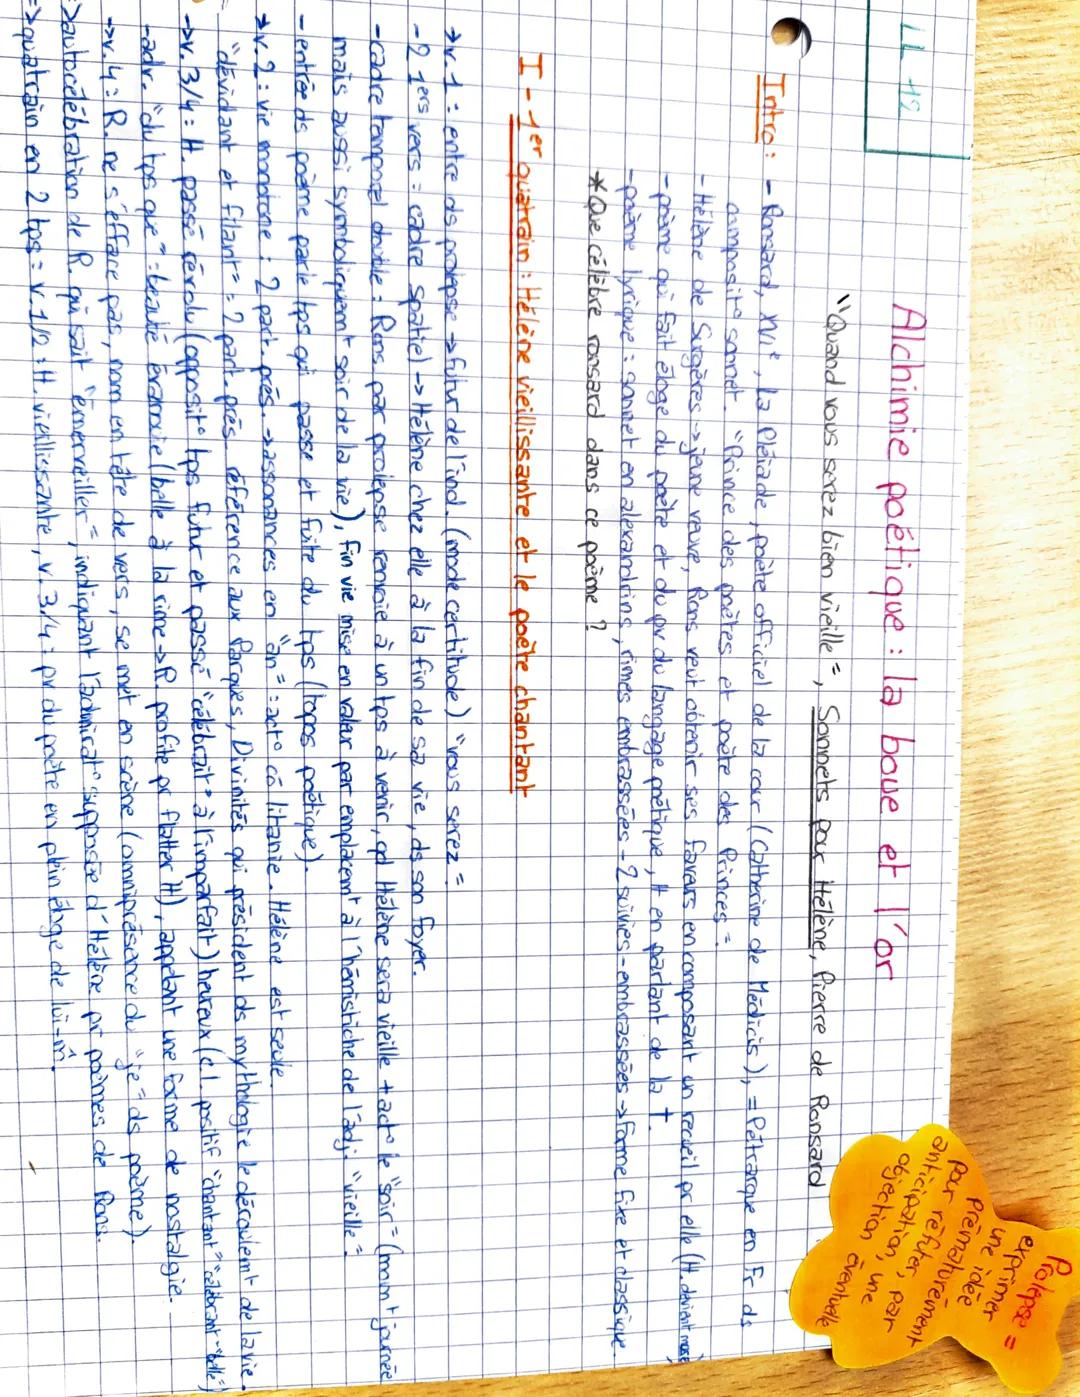 LL 12
Alchimie poétique : la boue et l'or
"Quand vous serez bien vieille", Sonnets pour Hélène, Pierre de Ronsard
Prolepse =
exprimer
une idée
prématurément
pour réfuter, par
anticipation, une
objection éventuelle
Intro : - Ronsard, XVIe, La Pléiade, poète officiel de la cour (Catherine de Médicis), = Pétrarque en Fr ds
composit° sonnet. "Prince des poètes et poète des Princes"
- Hélène de Surgères → jeune veuve, Rons veut obtenir ses faveurs en composant un recueil pr elle (H. devient muse)
- poème qui fait éloge du poète et du pv du langage poétique, H en parlant de la †.
- poème lyrique : sonnet en alexandrins, rimes embrassées - 2 suivies - embrassées → forme fixe et classique.
* Que célèbre ronsard dans ce poème ?
I - 1er quatrain : Hélène vieillissante et le poète chantant
→ v.1 : entre ds prolepse → futur de l'ind. (mode certitude) "vous serez"
- 2 1ers vers : cadre spatiel → Hélène chez elle à la fin de sa vie, ds son foyer.
- cadre temporel double : Rons. par prolepse renvoie à un tps à venir, qd Hélène sera vieille + act° le "soir" (momt journée
mais aussi symboliquemt soir de la vie), fin vie mise en valeur par emplacemt à l'hémistiche de l'adj. "vieille"
- entrée ds poème parle tps qui passe et fuite du tps (topos poétique).
→ v.2 : vie monotone : 2 part. prés. → assonances en "an" : act° cô litanie. Hélène est seule.
"dévidant et filant" : 2 part. prés référence aux Parques, Divinités qui président ds mythologie le déroulemt de la vie.
→ v.3/4 : H. passé révolu (opposit° tps futur et passé "célébrait" à l'imparfait) heureux (cl. positif "chantant" "célébrant" "belle")
- adv. "du tps que" : beauté évanouie (belle à la rime → R. profite pr flatter H), appelant une forme de nostalgie.
→ v.4 : R. ne s'efface pas, nom en tête de vers, se met en scène (omniprésence du "je" ds poème).
⇒ autocélébration de R. qui sait "émerveiller", indiquant l'admirat° supposée d'Hélène pr poèmes de Rons.
⇒ quatrain en 2 tps : v.1/2 : H. vieillissante, v.3/4 : pv du poète en plein éloge de lui-m̂.